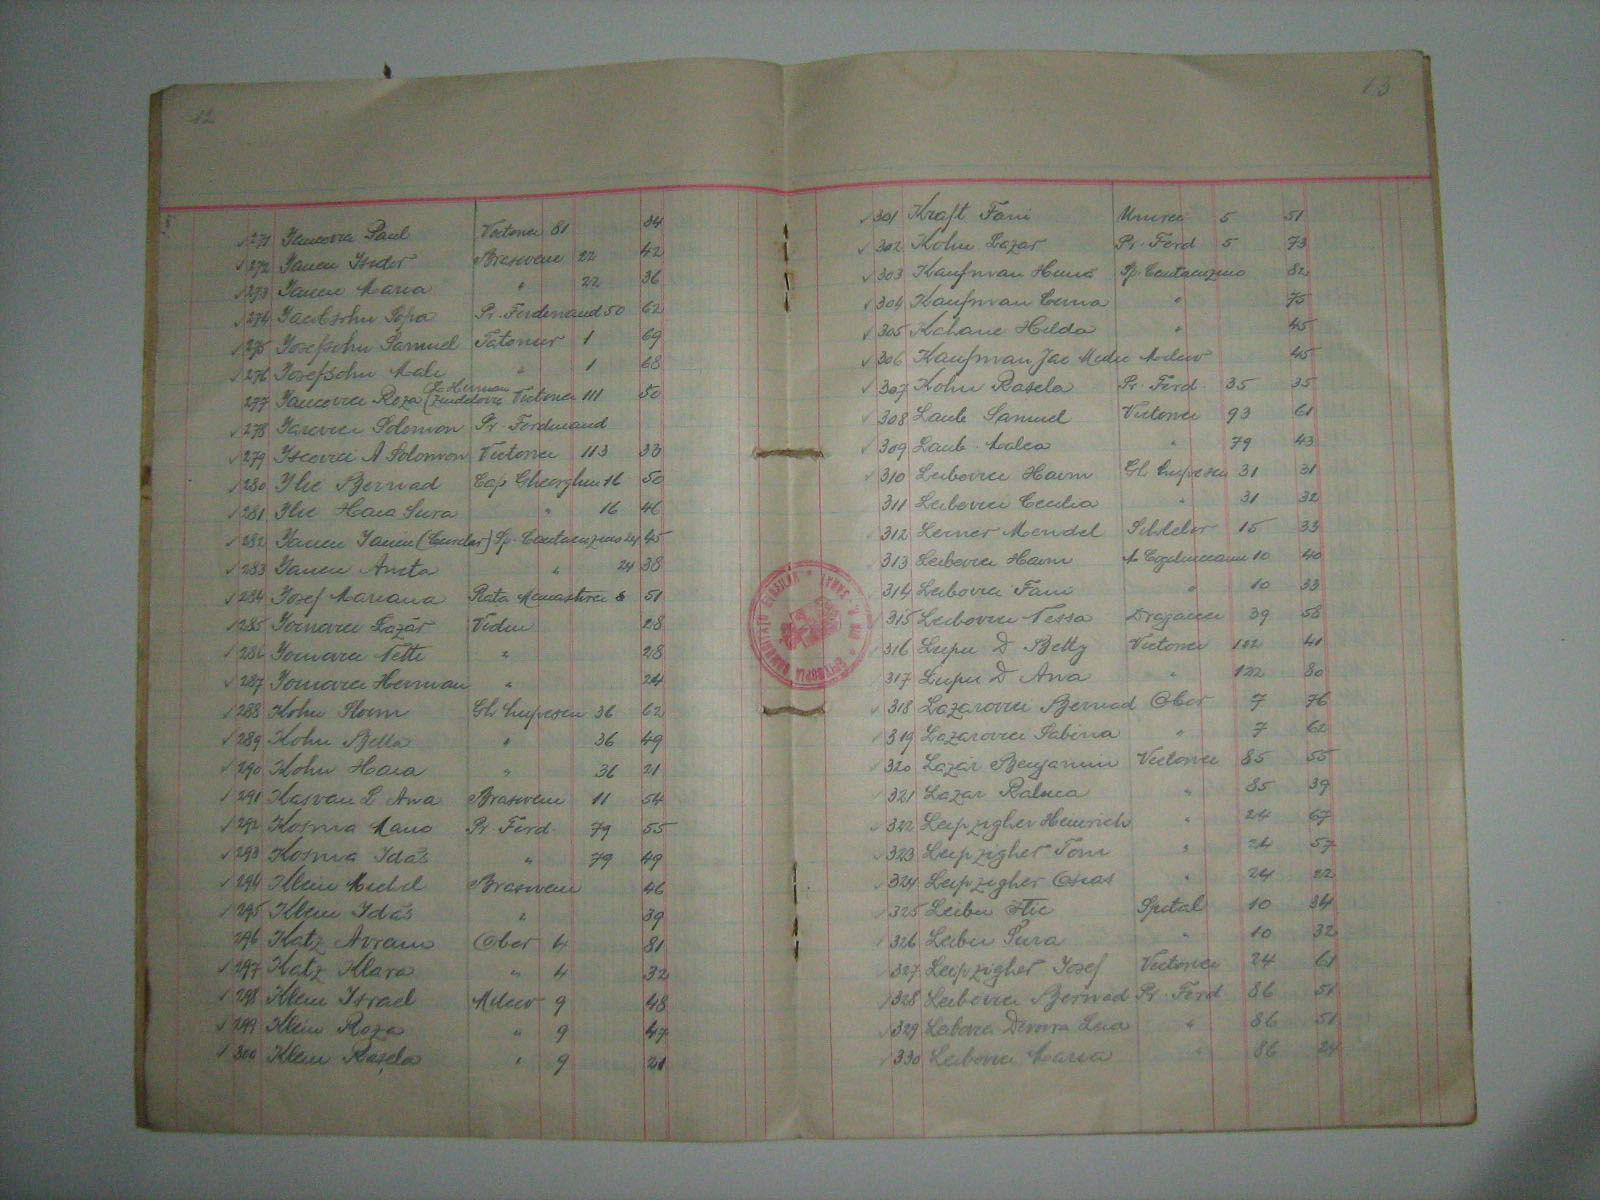 12
271 Iancovici Paul Victoriei 81 34
272 Iancu Isidor Brasoveni 22 42
273 Iancu Maria " 22 36
274 Iacobsohn Sofia Pr. Ferdinand 50 62
275 Iosefsohn Samuel 1 69
276 Iosefsohn Mali " 1 68
277 Iancovici Roza Victoriei 111 50
278 Solomon Pr. Ferdinand
279 A Solomon Victoriei 113 33
280 Ilie Bernad Cap. Gheorghiu 16 50
281 Ilie Haia Sura " 16 46
282 Iancu Iancu Sp. Cantacuzino 24 45
283 Iancu Aneta " 24 38
284 Iosef Mariana 51
285 Lazăr Vidin 28
286 Netti " 28
287 Herman " 24
288 Kohn Gh. Lupescu 36 62
289 Kohn Bella " 36 49
290 Kohn Haia " 36 21
291 L Ana Brasoveni 11 54
292 Kosma Pr. Ferd 79 55
293 Kosma Ida " 79 49
294 Klein Michel Brasoveni 46
295 Klein Ida " 39
296 Katz Avram Obor 4 81
297 Katz Klara " 4 32
298 Klein Israel Milcov 9 48
299 Klein Roza " 9 47
300 Klein Rașela " 9 21
13
301 Kraft Fani Unirei 5 51
302 Kohn Lazar Pr. Ferd 5 73
303 Kaufman Sp. Cantacuzino 82
304 Kaufman " 75
305 Kahane Hilda " 45
306 Kaufman Jac Milcov 45
307 Kohn Rasela Pr. Ferd. 35 35
308 Laub Samuel Victoriei 93 61
309 Laub Malca " 79 43
310 Leibovici Haim Gh. Lupescu 31 31
311 Leibovici Cecilia " 31 32
312 Lerner Mendel 15 33
313 Leibovici Haim M Cogalniceanu 10 40
314 Leibovici Fani " 10 33
315 Leibovici Nessa 39 58
316 Lupu D Betty Victoriei 122 41
317 Lupu D Ana " 122 80
318 Lazarovici Bernad Obor 7 76
319 Lazarovici Sabina " 7 62
320 Lazăr Benjamin Victoriei 85 55
321 Lazar Raluca " 85 39
322 Leipzigher Heinrich " 24 67
323 Leipzigher Toni " 24 57
324 Leipzigher Osias " 24 22
325 Leibu Ilie Spital 10 34
326 Leibu Sura " 10 32
327 Leipzigher Iosef Victoriei 24 61
328 Leibovici Bernad Pr. Ferd 86 51
329 Leibovici Lea " 86 51
330 Leibovici Maria " 86 24